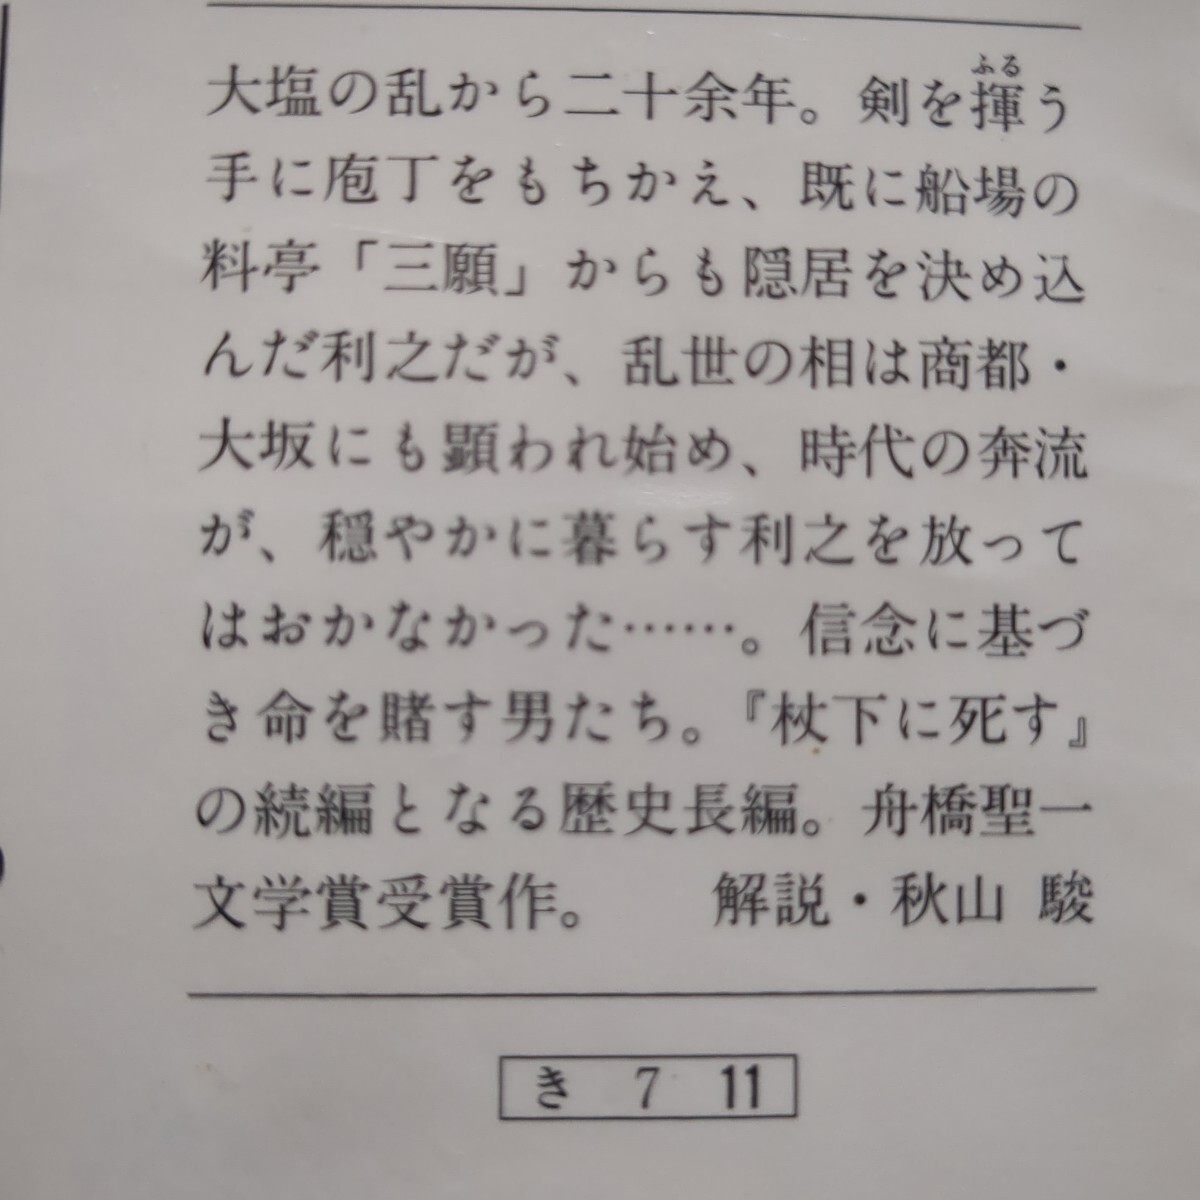 大塩の乱から二十余年。剣を揮う
手に庖丁をもちかえ、既に船場の
料亭「三願」からも隠居を決め込
んだ利之だが、乱世の相は商都・
大坂にも顕われ始め、時代の奔流
が、穏やかに暮らす利之を放って
はおかなかった……。信念に基づ
き命を賭す男たち。『杖下に死す』
の続編となる歴史長編。舟橋聖一
文学賞受賞作。 解説・秋山 駿
き 7 11